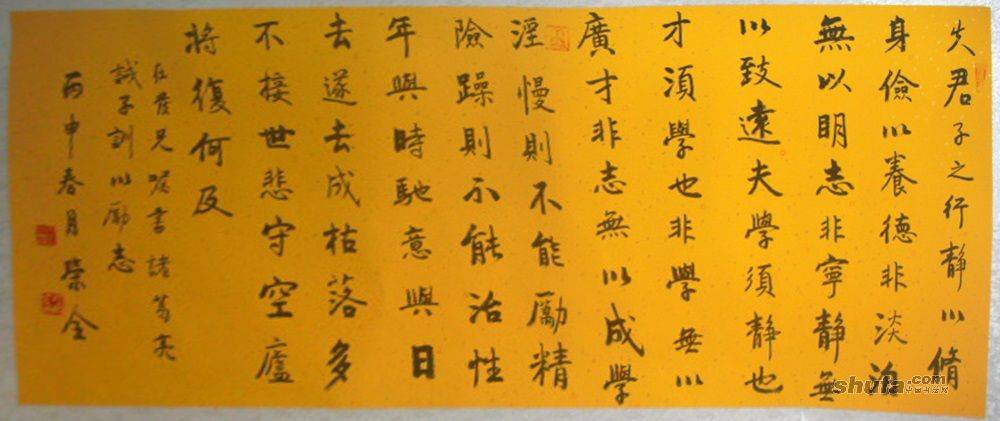 夫君子之行静以脩
身儉以養德非淡泊
無以明志非寧静無
以致遠夫學須静也
才須學也非學無以
廣才非志無以成學
淫慢則不能勵精
險躁則不能治性
年與時馳意與日
去遂去成枯落多
不接世悲守空廬
將復何及
兄囑書諸葛亮
誡子訓以勵志
丙申春月榮全
shufa.com
中国书法网